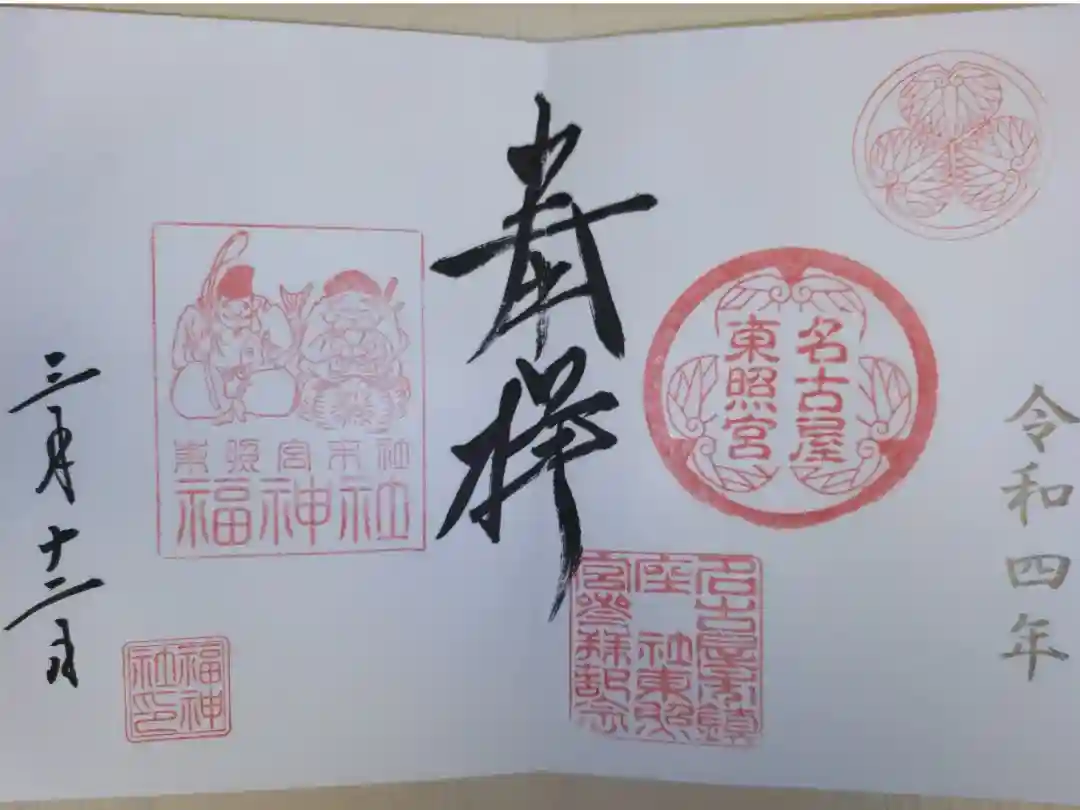 令和四年
名古屋
東照宮
名古屋市鎮
座 社東照
宮参拝記念
奉拝
東照宮末社
福神社
福神
社印
三月十二日